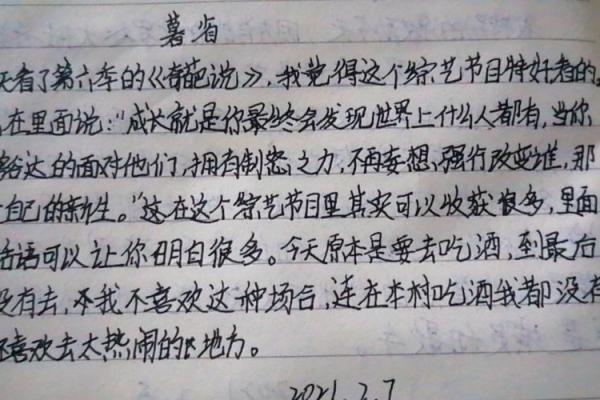 暮省
天看了第六季的《奇葩说》,我觉得这个综艺节目特好看的。
在里面说:"成长就是你最终会发现世界上什么人都有,当你
豁达的面对他们,拥有制怒之力,不再妄想强行改变谁,那
自己的新生。"这在这个综艺节目里其实可以收获很多,里面
话语可以让你明白很多。今天原本是要去吃酒,到最后
没有去,我不喜欢这种场合,连在本村吃酒我都没有
不喜欢去太热闹的地方。
2021.2.7